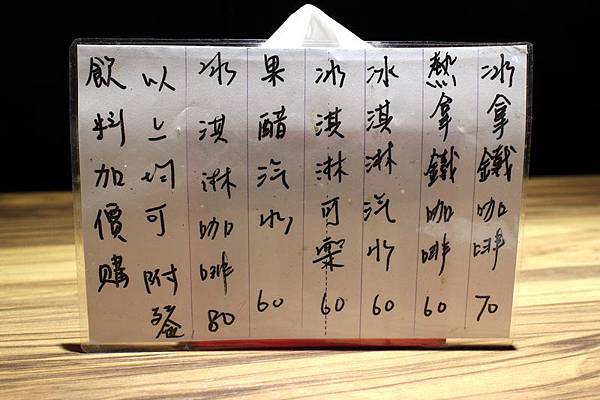 冰拿鐵咖啡 70
熱拿鐵咖啡 60
冰淇淋汽水 60
冰淇淋可樂 60
果醋汽水 60
冰淇淋咖啡 80
以上均可附餐
飲料加價購